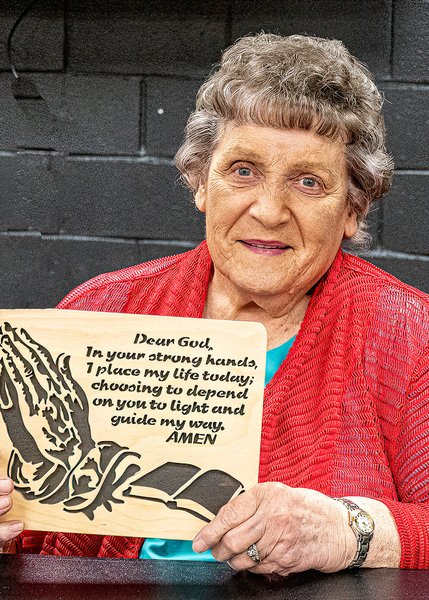 Dear God,
In your strong hands,
I place my life today;
choosing to depend
on you to light and
guide my way.
AMEN